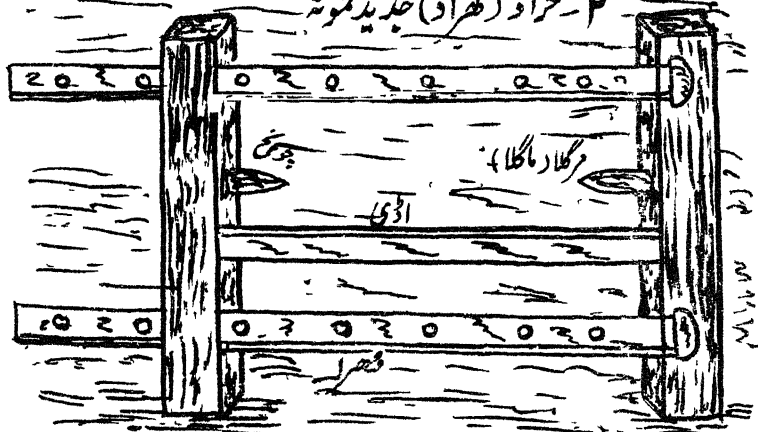 ۲ - خراد (کھراد) جدید نمونہ
چونچ
مرگلا (ماگلا)
اڈی
دُھرا